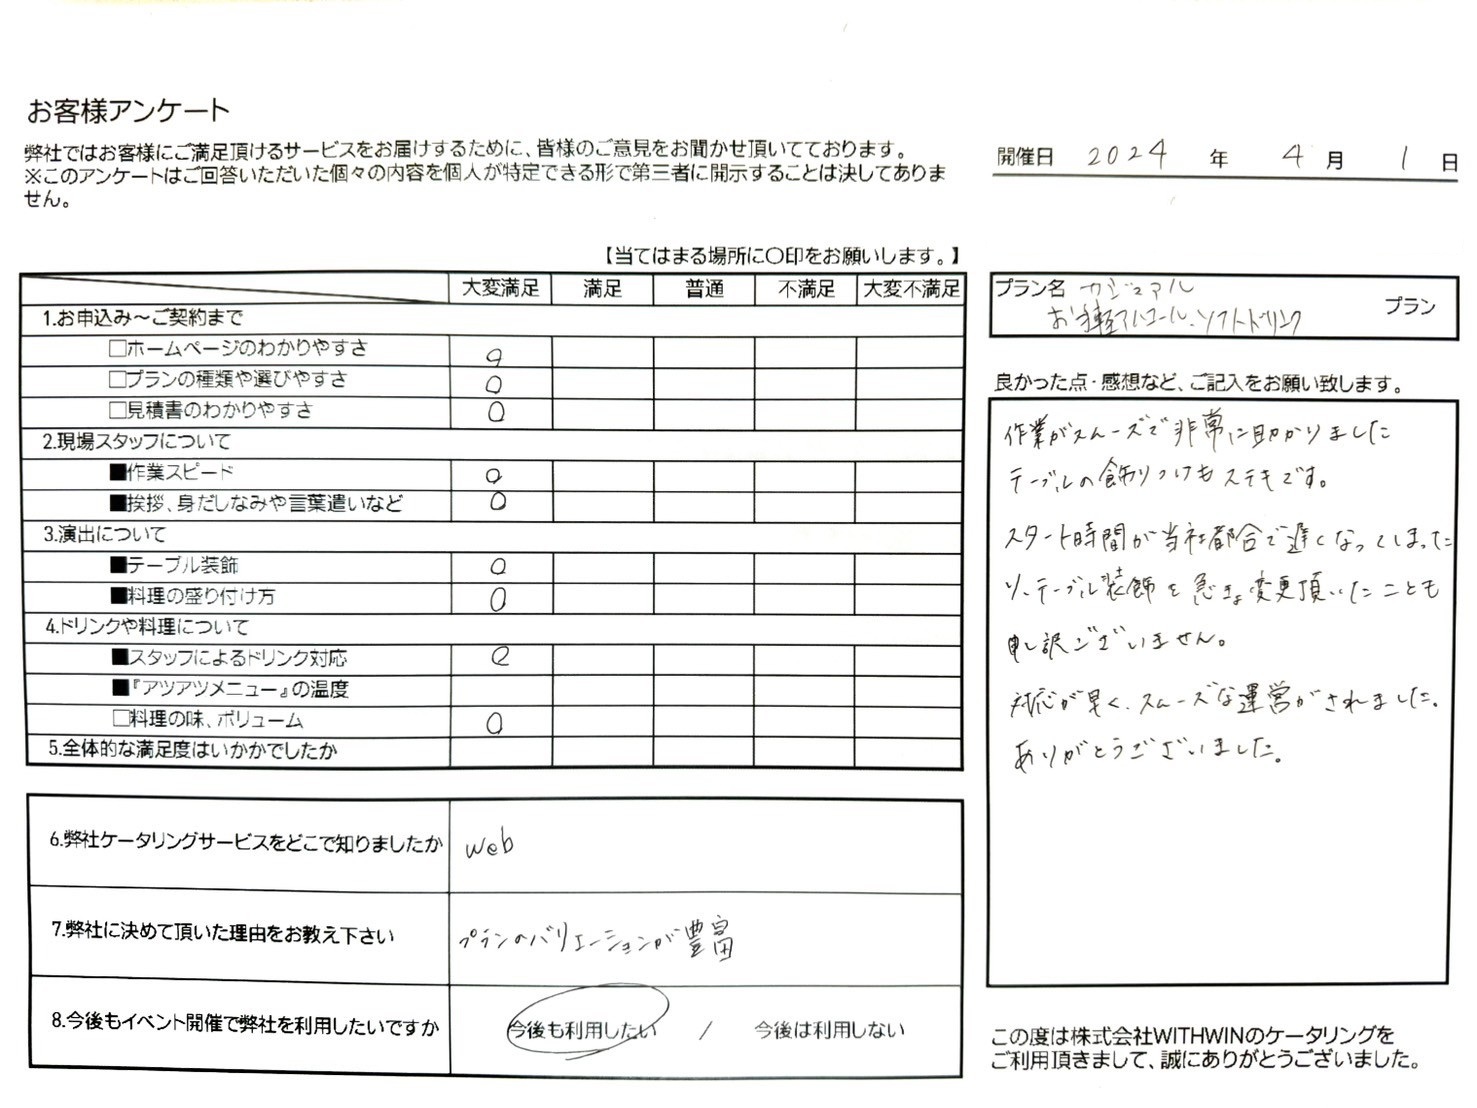 お客様アンケート
弊社ではお客様にご満足頂けるサービスをお届けするために、皆様のご意見をお聞かせ頂いてております。
※このアンケートはご回答いただいた個々の内容を個人が特定できる形で第三者に開示することは決してありま
せん。
開催日 2024 年 4 月 1 日
【当てはまる場所に〇印をお願いします。】
大変満足 満足 普通 不満足 大変不満足
1.お申込み～ご契約まで
□ホームページのわかりやすさ ○
□プランの種類や選びやすさ ○
□見積書のわかりやすさ ○
2.現場スタッフについて
■作業スピード ○
■挨拶、身だしなみや言葉遣いなど ○
3.演出について
■テーブル装飾 ○
■料理の盛り付け方 ○
4.ドリンクや料理について
■スタッフによるドリンク対応 ○
■『アツアツメニュー』の温度
□料理の味、ボリューム ○
5.全体的な満足度はいかかでしたか
6.弊社ケータリングサービスをどこで知りましたか web
7.弊社に決めて頂いた理由をお教え下さい プランのバリエーションが豊富
8.今後もイベント開催で弊社を利用したいですか 今後も利用したい / 今後は利用しない
プラン名 カジュアル
お手軽アルコール・ソフトドリンク プラン
良かった点・感想など、ご記入をお願い致します。
作業がスムーズで非常に助かりました
テーブルの飾りつけもステキです。
スタート時間が当社都合で遅くなってしまった
り、テーブル装飾を急きょ変更頂いたことも
申し訳ございません。
対応が早く、スムーズな運営がされました。
ありがとうございました。
この度は株式会社WITHWINのケータリングを
ご利用頂きまして、誠にありがとうございました。